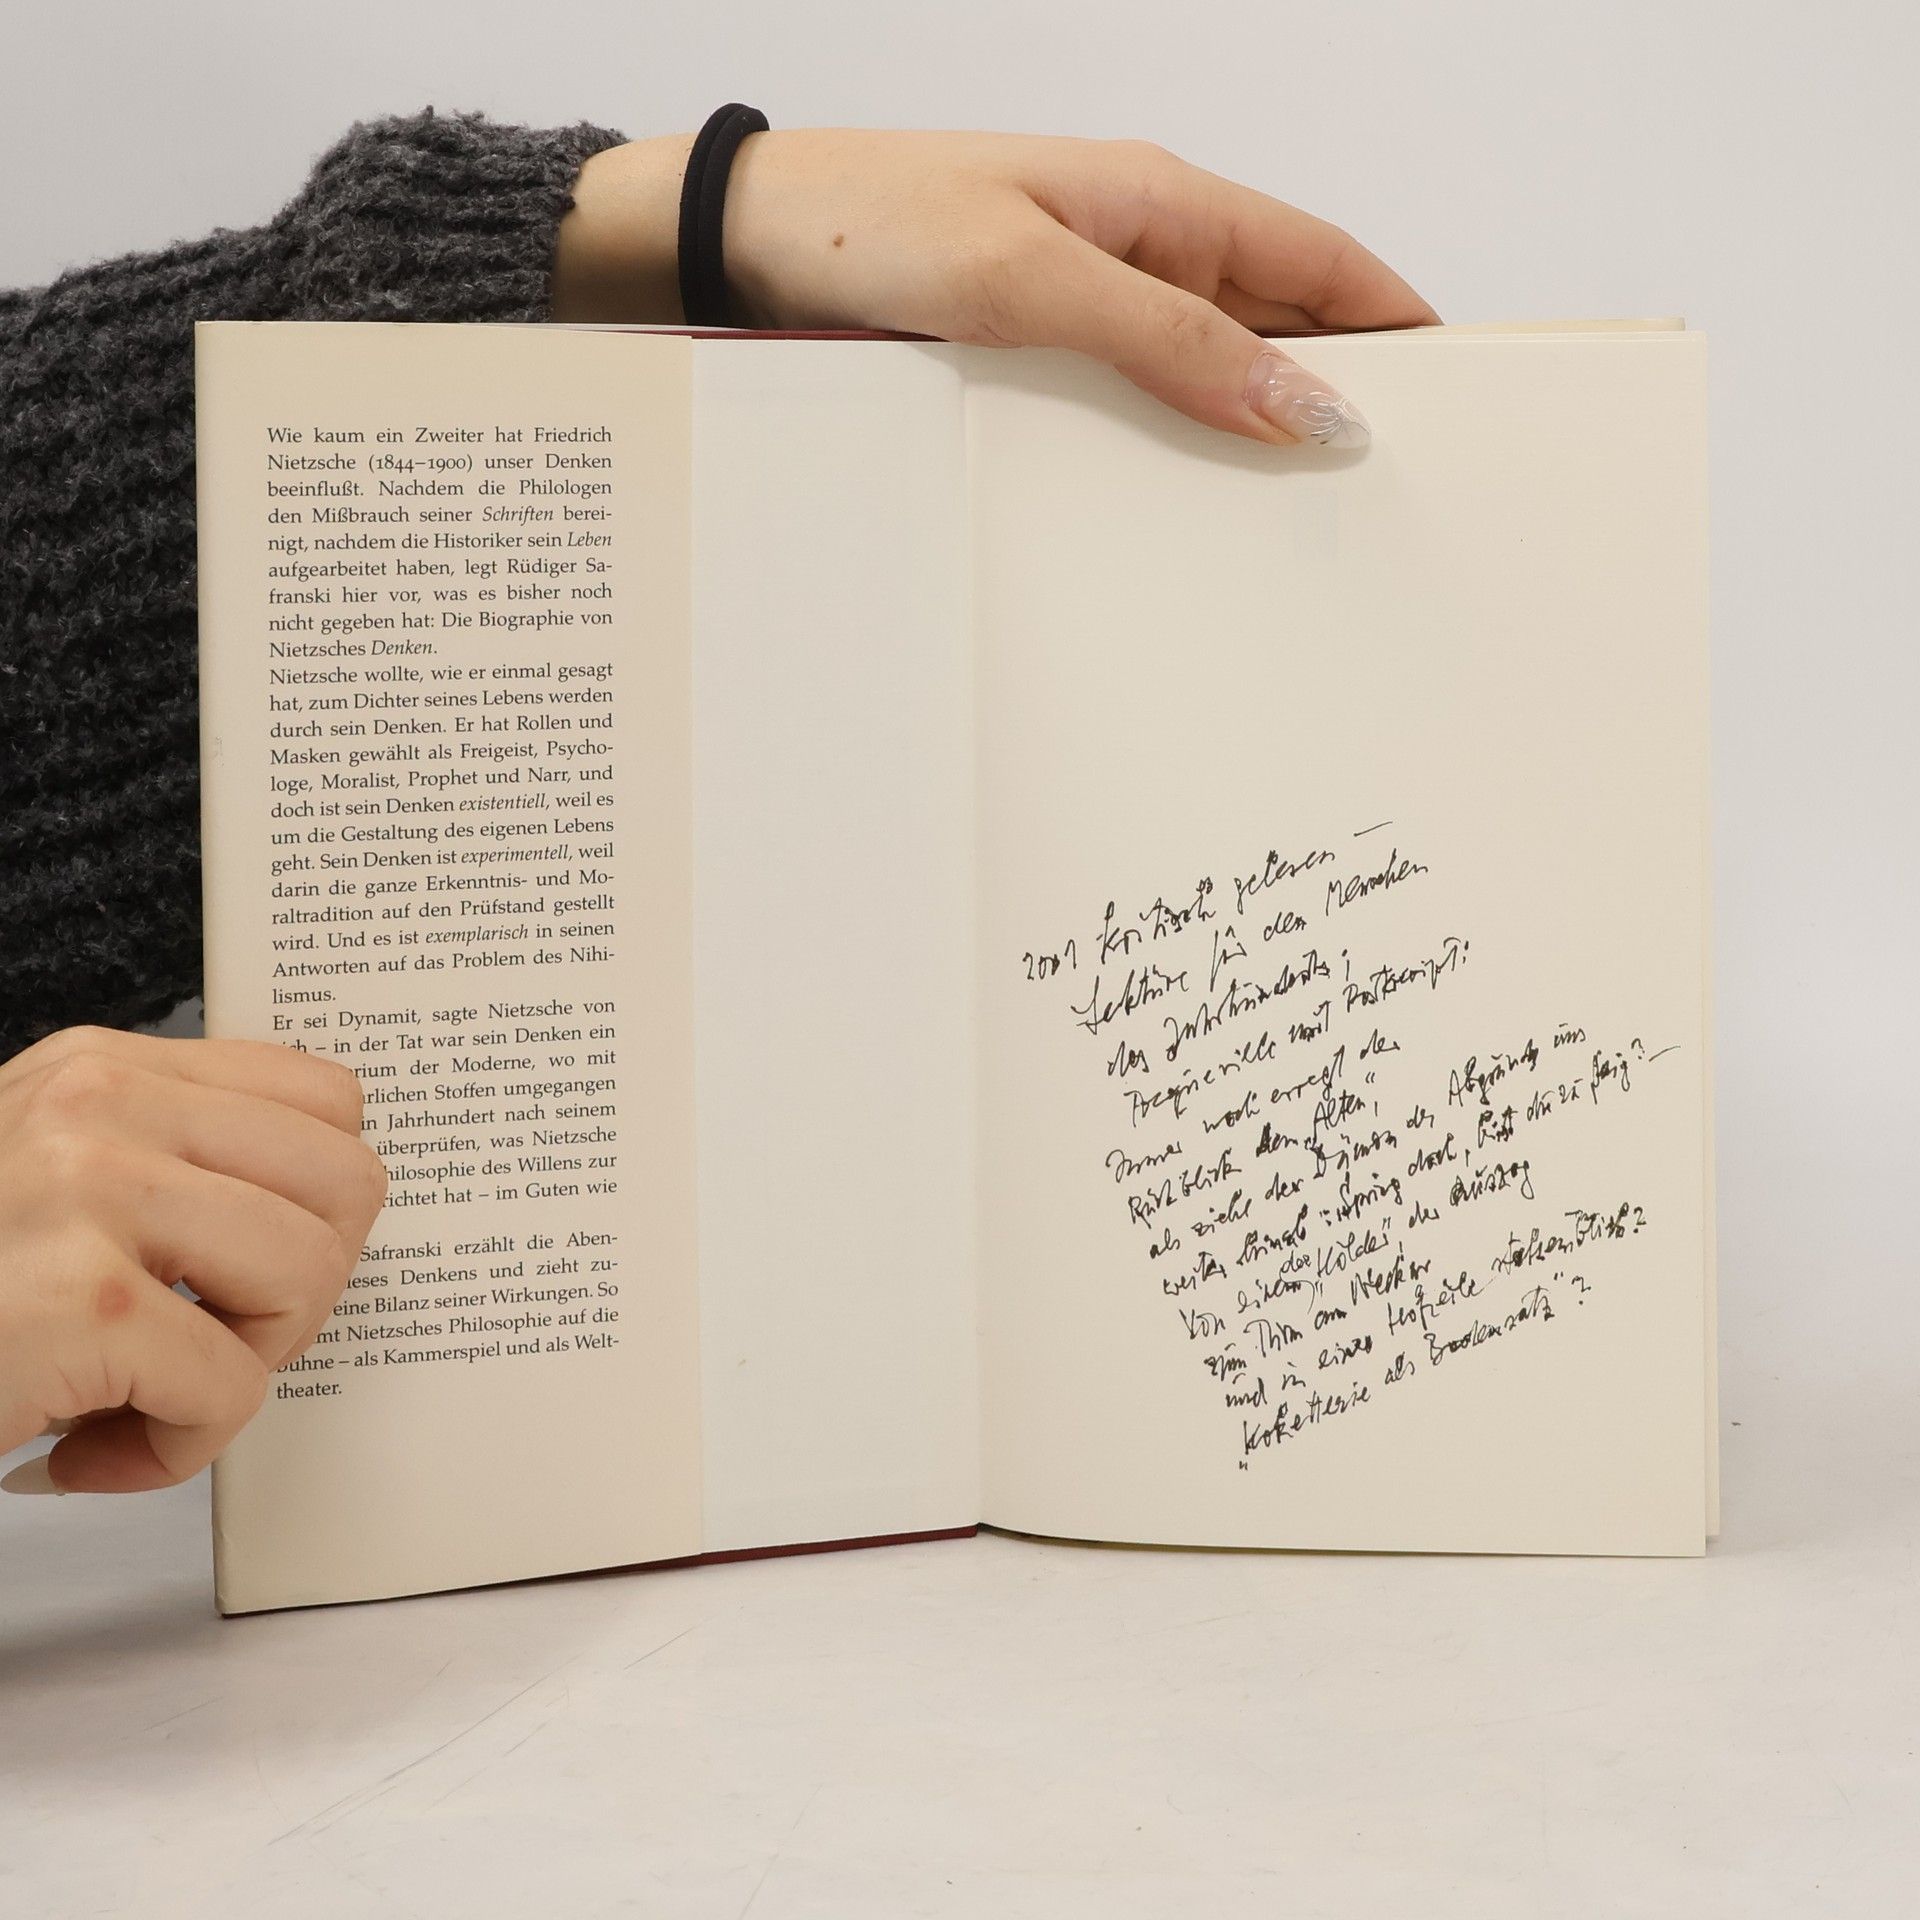 Wie kaum ein Zweiter hat Friedrich
Nietzsche (1844–1900) unser Denken
beeinflußt. Nachdem die Philologen
den Mißbrauch seiner Schriften berei-
nigt, nachdem die Historiker sein Leben
aufgearbeitet haben, legt Rüdiger Sa-
franski hier vor, was es bisher noch
nicht gegeben hat: Die Biographie von
Nietzsches Denken.
Nietzsche wollte, wie er einmal gesagt
hat, zum Dichter seines Lebens werden
durch sein Denken. Er hat Rollen und
Masken gewählt als Freigeist, Psycho-
loge, Moralist, Prophet und Narr, und
doch ist sein Denken existentiell, weil es
um die Gestaltung des eigenen Lebens
geht. Sein Denken ist experimentell, weil
darin die ganze Erkenntnis- und Mo-
raltradition auf den Prüfstand gestellt
wird. Und es ist exemplarisch in seinen
Antworten auf das Problem des Nihi-
lismus.
Er sei Dynamit, sagte Nietzsche von
– in der Tat war sein Denken ein
der Moderne, wo mit
Stoffen umgegangen
Jahrhundert nach seinem
überprüfen, was Nietzsche
des Willens zur
hat – im Guten wie
Safranski erzählt die Aben-
Denkens und zieht zu-
eine Bilanz seiner Wirkungen. So
Nietzsches Philosophie auf die
– als Kammerspiel und als Welt-
theater.
2001 kritisch gelesen —
Lektüre für den Menschen
des Jahrhunderts;
mit Postscript:
Immer noch erregt der
Rückblick den „Alten“,
als ziehe der Dämon des Abgrunds uns
weiter hinab: "Spring doch, bist du zu feig? —
Von der "Hölder", der Auszug
zum Turm am Neckar
und in einer
"Koketterie als Bodensatz"?